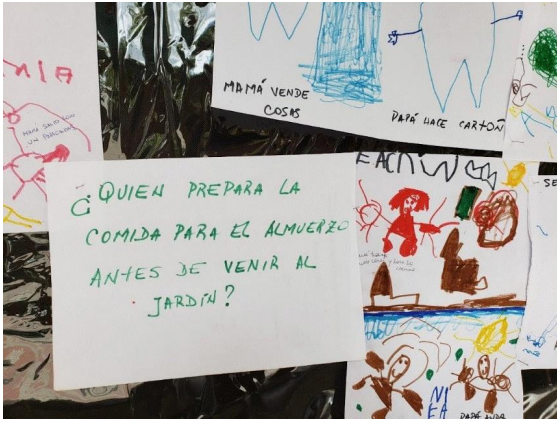 MAMÁ VENDE
COSAS
PAPÁ HACE CARTON
¿QUIEN PREPARA LA
COMIDA PARA EL ALMUERZO
ANTES DE VENIR AL
JARDÍN?
PAPÁ ANDA